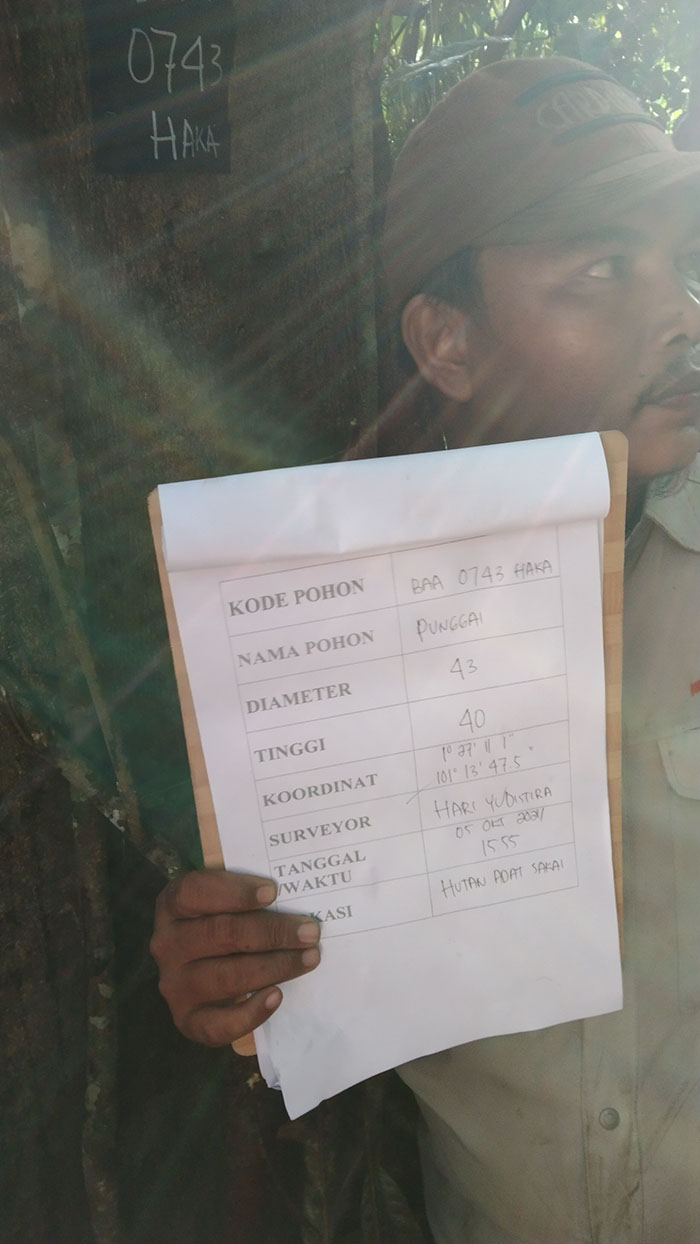 0743
HAKA
KODE POHON BAA 0743 HAKA
NAMA POHON PUNGGAI
DIAMETER 43
TINGGI 40
KOORDINAT 1° 27' 11 1"
101° 13' 47.5"
SURVEYOR HARI YUDISTIRA
TANGGAL 05 OKT 2021/
/WAKTU 1555
KASI HUTAN ADAT SAKAI